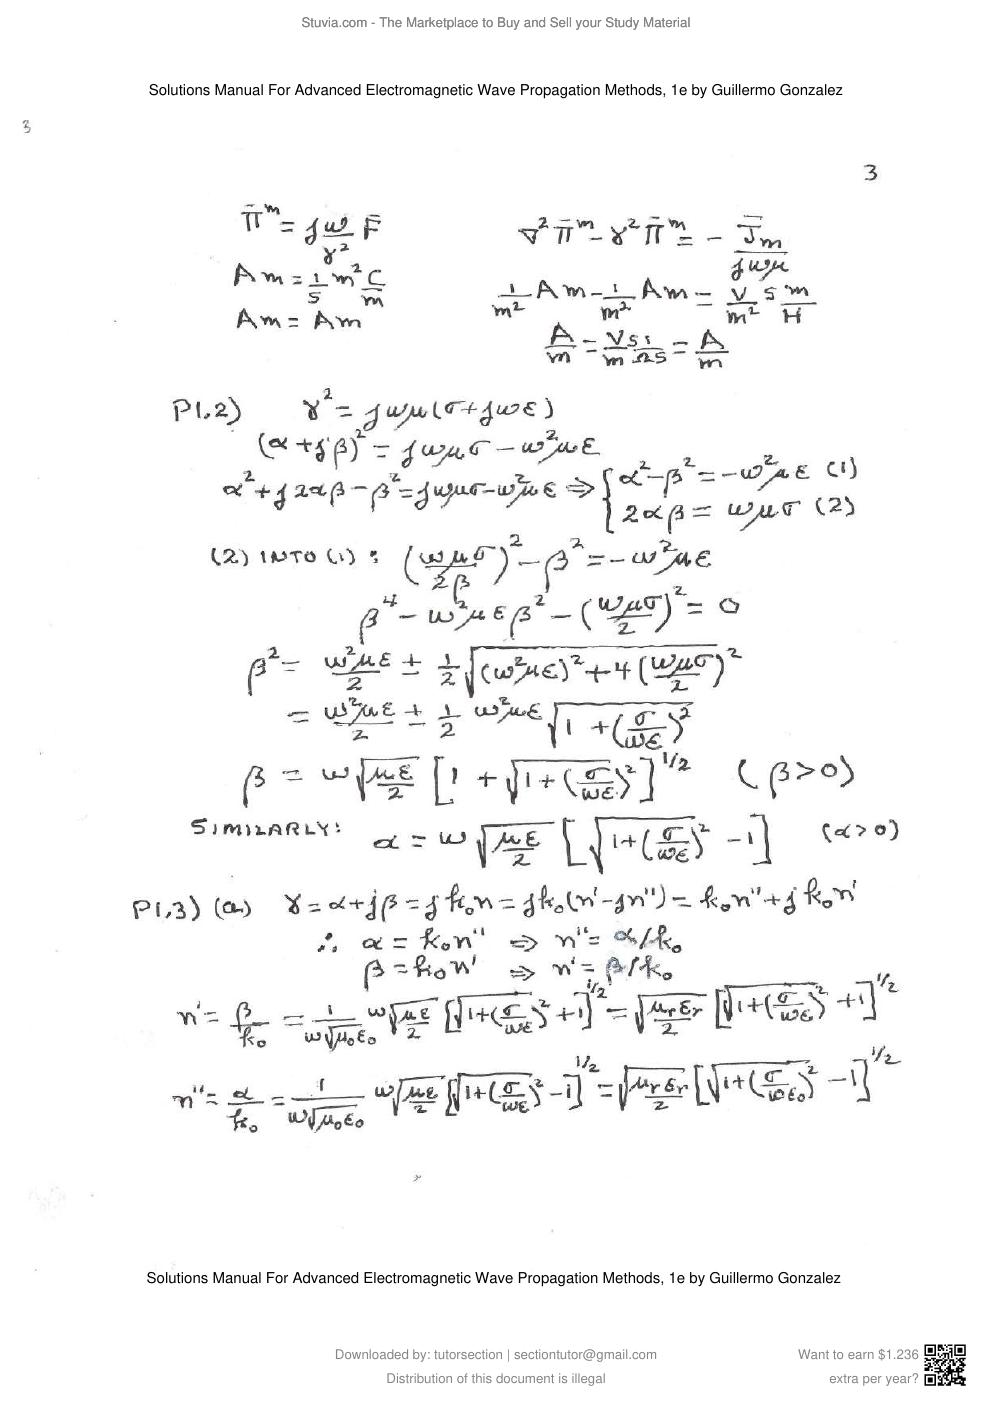 Stuvia.com - The Marketplace to Buy and Sell your Study Material
Solutions Manual For Advanced Electromagnetic Wave Propagation Methods, 1e by Guillermo Gonzalez
3
3
Π̄^m = jω/γ² F̄
∇² Π̄^m - γ² Π̄^m = - J̄m/jωμ
Am = 1/s m² C/m
1/m² Am - 1/m² Am = V/m² s m/H
Am = Am
A/m = V/m s 1/Ωs = A/m
P1.2) γ² = jωμ(σ+jωε)
(α+jβ)² = jωμσ - ω²με
α² + j2αβ - β² = jωμσ - ω²με ⇒ { α² - β² = -ω²με (1)
2αβ = ωμσ (2)
(2) INTO (1) : (ωμσ/2β)² - β² = -ω²με
β⁴ - ω²με β² - (ωμσ/2)² = 0
β² = ω²με/2 ± 1/2 √((ω²με)² + 4(ωμσ/2)²)
= ω²με/2 ± 1/2 ω²με √(1 + (σ/ωε)²)
β = ω√(με/2) [1 + √(1+(σ/ωε)²)]^1/2 (β>0)
SIMILARLY: α = ω√(με/2) [√(1+(σ/ωε)²) - 1] (α>0)
P1.3) (a) γ = α+jβ = jk₀n = jk₀(n'-jn'') = k₀n''+jk₀n'
∴ α = k₀n'' ⇒ n'' = α/k₀
β = k₀n' ⇒ n' = β/k₀
n' = β/k₀ = 1/ω√(μ₀ε₀) ω√(με/2) [√(1+(σ/ωε)²) + 1]^1/2 = √(μrεr/2) [√(1+(σ/ωε)²) + 1]^1/2
n'' = α/k₀ = 1/ω√(μ₀ε₀) ω√(με/2) [√(1+(σ/ωε)²) - 1]^1/2 = √(μrεr/2) [√(1+(σ/ωε₀)²) - 1]^1/2
Solutions Manual For Advanced Electromagnetic Wave Propagation Methods, 1e by Guillermo Gonzalez
Downloaded by: tutorsection | sectiontutor@gmail.com
Want to earn $1.236
Distribution of this document is illegal
extra per year?